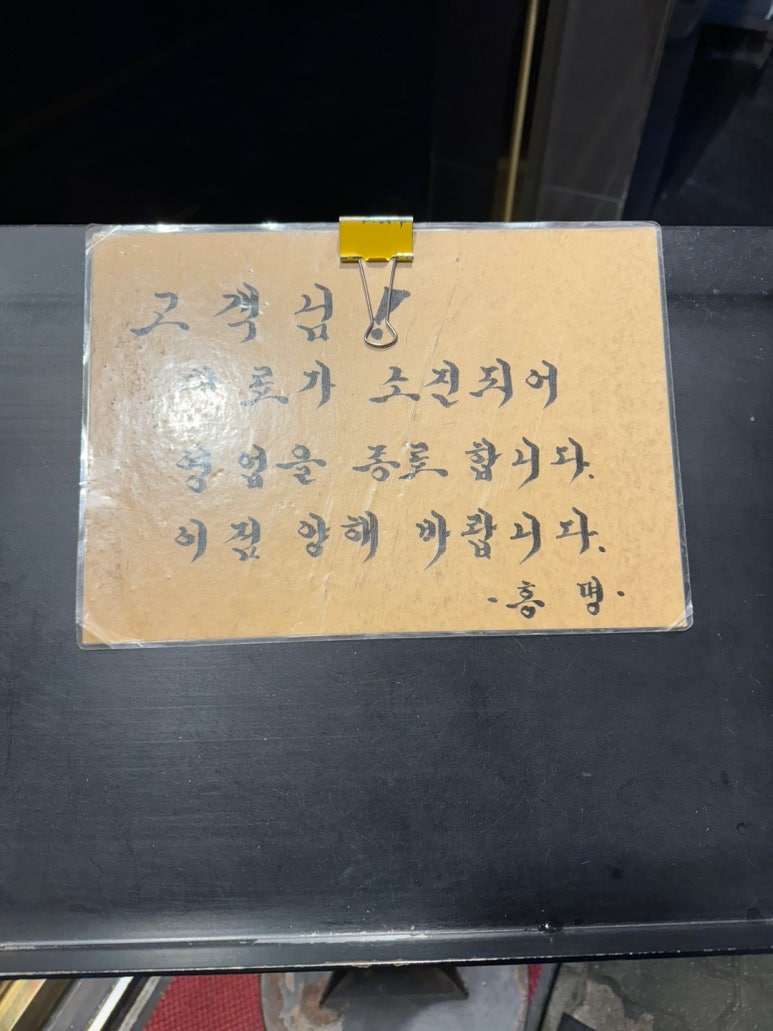 고객님!
재료가 소진되어
영업을 종료 합니다.
이점 양해 바랍니다.
·홍 명·